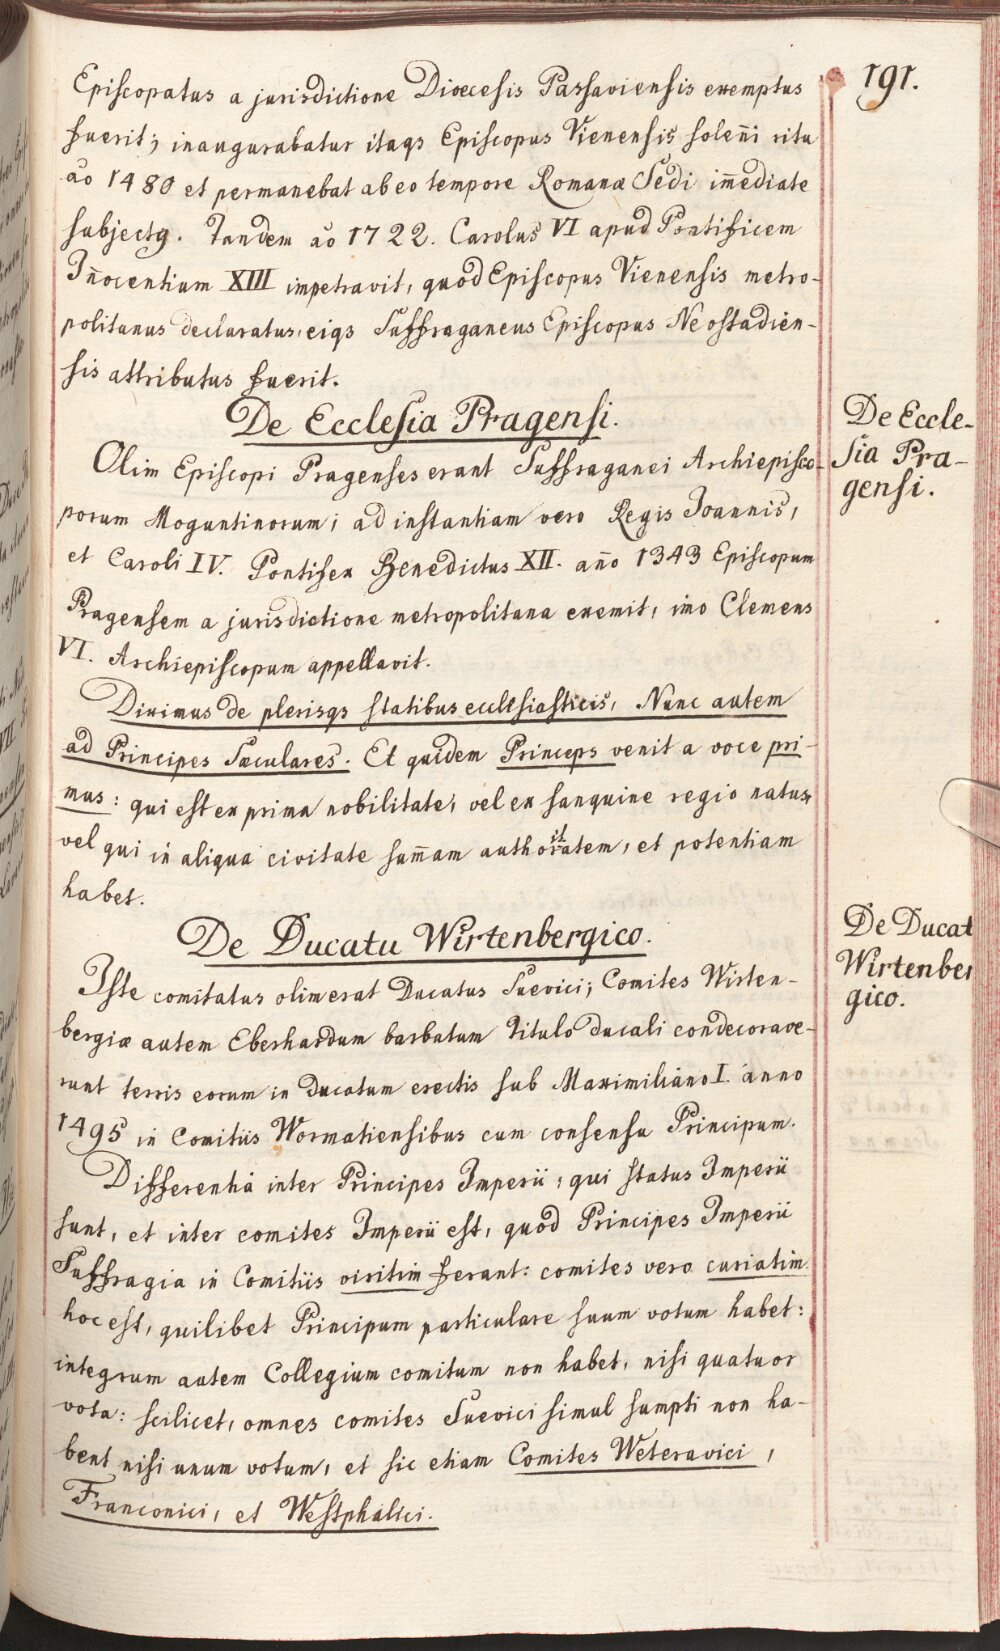 191.
Episcopatus a jurisdictione Diœcesis Passaviensis exemptus
fuerit; inaugurabatur itaqs Episcopus Vienensis soleñi ritu
ao 1480 et permanebat ab eo tempore Romanæ Sedi im̃ediate
subjectꝯ. Tandem ao 1722. Carolus VI apud Pontificem
Iñocentium XIII impetravit, quod Episcopus Vienensis metro-
politanus declaratus, eiqs Suffraganeus Episcopus Neostadien-
sis attributus fuerit.
De Ecclesia Pragensi.
De Eccle-
sia Pra-
gensi.
Olim Episcopi Pragenses erant Suffraganei Archiepisco-
porum Moguntinorum; ad instantiam vero Regis Joannis,
et Caroli IV. Pontifex Benedictus XII. año 1343 Episcopum
Pragensem a jurisdictione metropolitana exemit, imo Clemens
VI. Archiepiscopum appellavit.
Diximus de plerisqs statibus ecclesiasticis, Nunc autem
ad Principes Sæculares. Et quidem Princeps venit a voce pri-
mus: qui est ex prima nobilitate, vel ex sanquine regio natus,
vel qui in aliqua civitate sum̃am authoritatem, et potentiam
habet.
De Ducatu Wirtenbergico.
De Ducat
Wirtenber
gico.
Iste comitatus olim erat Ducatus Suevici; Comites Wirten-
bergiæ autem Eberhardum barbatum titulo ducali condecorave-
runt terris eorum in Ducatum erectis sub Maximiliano I. anno
1495 in Comitiis Wormatiensibus cum consensu Principum.
Differentia inter Principes Imperii, qui status Imperii
sunt, et inter comites Imperii est, quod Principes Imperii
Suffragia in Comitiis viritim ferant: comites vero curiatim
hoc est, quilibet Principum particulare suum votum habet:
integrum autem Collegium comitum non habet, nisi quatuor
vota: scilicet, omnes comites Suevici simul sumpti non ha-
bent nisi unum votum, et sic etiam Comites Weteravici,
Franconici, et Westphalici.